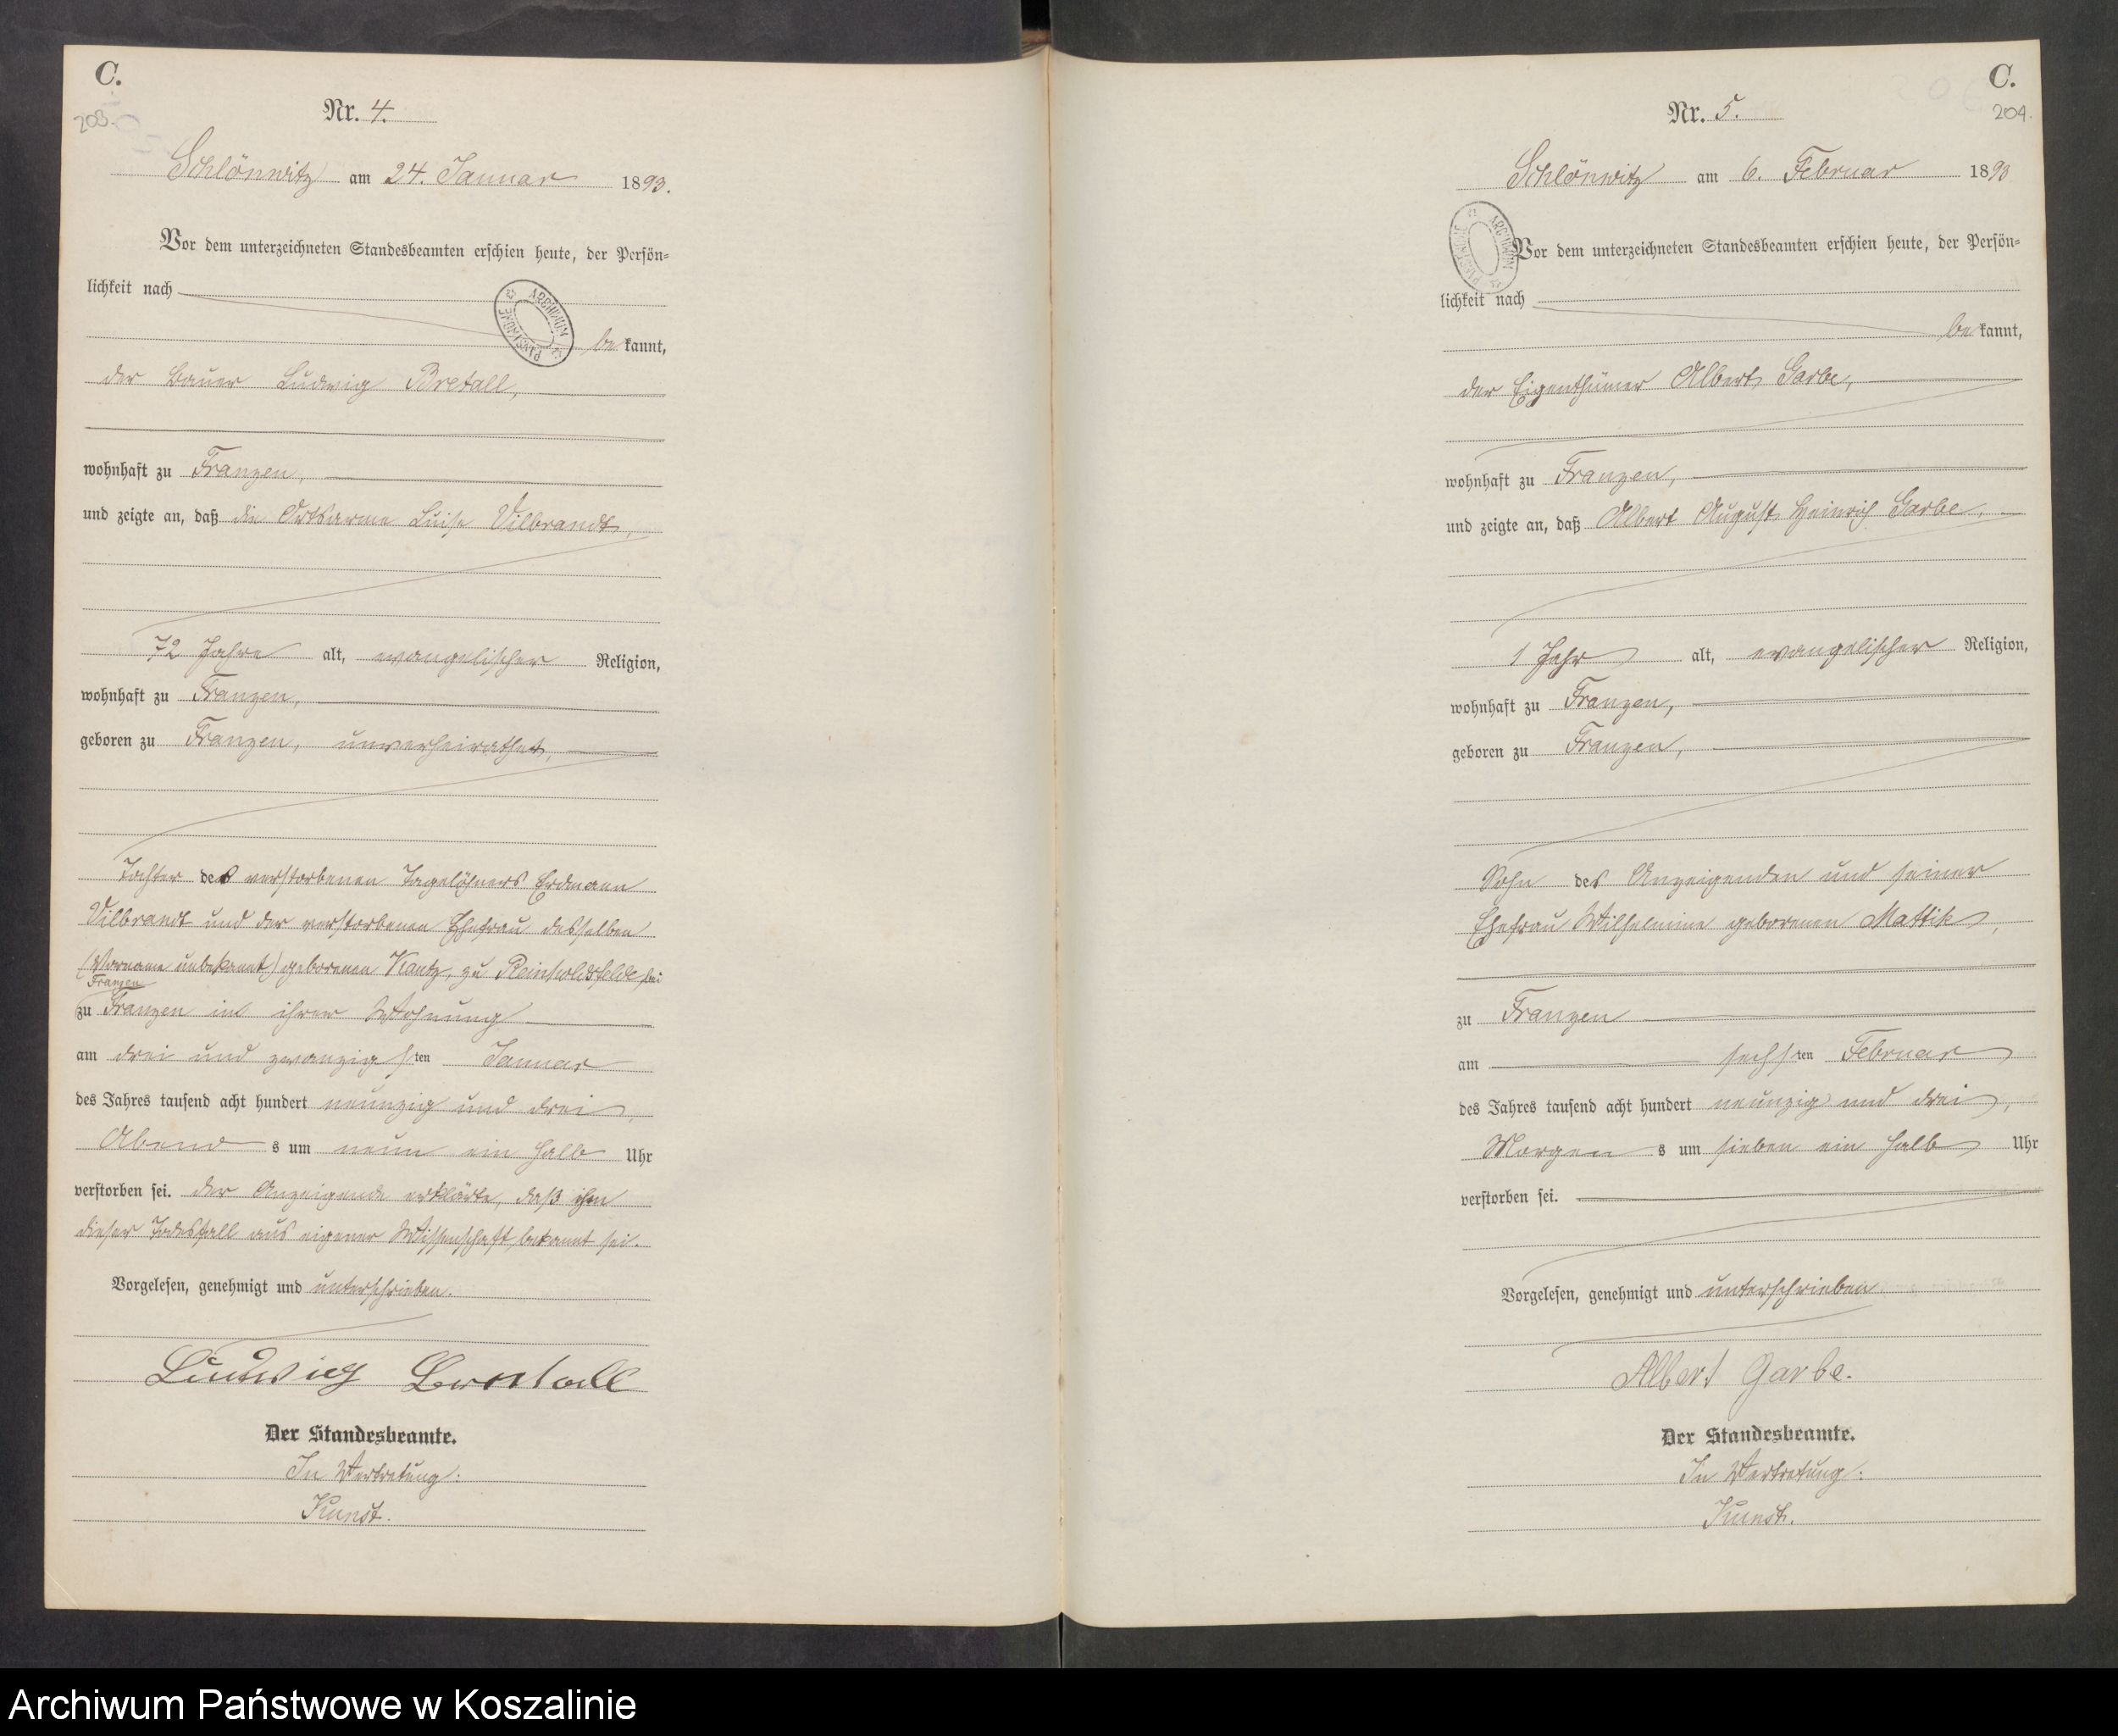 C.
203.
Nr. 4.
Schlönwitz am 24. Januar 1893.
Vor dem unterzeichneten Standesbeamten erschien heute, der Persön-
lichkeit nach
ARCHIWUM PAŃSTWOWE
be kannt,
der Bauer Ludwig Bretall,
wohnhaft zu Franzen,
und zeigte an, daß die Ortsarme Luise Vilbrandt,
72 Jahre alt, evangelischer Religion,
wohnhaft zu Franzen,
geboren zu Franzen, unverheirathet,
Tochter des verstorbenen Tagelöhners Erdmann
Vilbrandt und der verstorbenen Ehefrau desselben
(Vorname unbekannt) geborenen Kantz, zu Reinholdsfelde bei
Franzen
zu Franzen in ihrer Wohnung
am drei und zwanzigsten Januar
des Jahres tausend acht hundert neunzig und drei,
Abends um neun ein halb Uhr
verstorben sei. Der Anzeigende erklärte, daß ihm
dieser Todesfall aus eigener Wissenschaft bekannt sei.
Vorgelesen, genehmigt und unterschrieben.
Ludwig Bretall
Der Standesbeamte.
In Vertretung:
Kunst.
C.
204.
Nr. 5.
Schlönwitz am 6. Februar 1893
ARCHIWUM PAŃSTWOWE
Vor dem unterzeichneten Standesbeamten erschien heute, der Persön-
lichkeit nach
be kannt,
der Eigenthümer Albert Garbe,
wohnhaft zu Franzen,
und zeigte an, daß Albert August Heinrich Garbe,
1 Jahr alt, evangelischer Religion,
wohnhaft zu Franzen,
geboren zu Franzen,
Sohn des Anzeigenden und seiner
Ehefrau Wilhelmine geborenen Mattik,
zu Franzen
am sechsten Februar
des Jahres tausend acht hundert neunzig und drei,
Morgens um sieben ein halb Uhr
verstorben sei.
Vorgelesen, genehmigt und unterschrieben
Albert Garbe.
Der Standesbeamte.
In Vertretung:
Kunst.
Archiwum Państwowe w Koszalinie